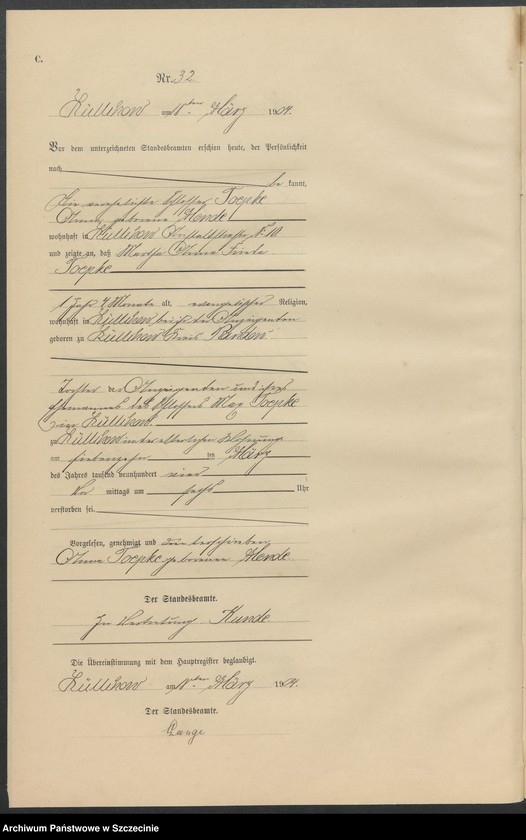 C.
Nr. 32
Züllchow am 18ten März 1904.
Vor dem unterzeichneten Standesbeamten erschien heute, der Persönlichkeit
nach
be kannt,
die verehelichte Schlosser Toepke
Anna geborene Wende
wohnhaft in Züllchow
und zeigte an, daß Martha Anna Frieda
Toepke
1 Jahr 4 Monate alt, evangelischer Religion,
wohnhaft in Züllchow bei der Anzeigenden
geboren zu Züllchow Kreis Randow
Tochter der Anzeigenden und ihres
Ehemannes des Schlossers Max Toepke
Züllchow.
zu Züllchow in der elterlichen Wohnung
am siebenzehnten März
des Jahres tausend neunhundert vier
Vor mittags um sechs Uhr
verstorben sei.
Vorgelesen, genehmigt und unterschrieben
Anna Toepke geborene Wende
Der Standesbeamte.
In Vertretung Kunde
Die Übereinstimmung mit dem Hauptregister beglaubigt.
Züllchow am 18ten März 1904.
Der Standesbeamte.
Lange
Archiwum Państwowe w Szczecinie